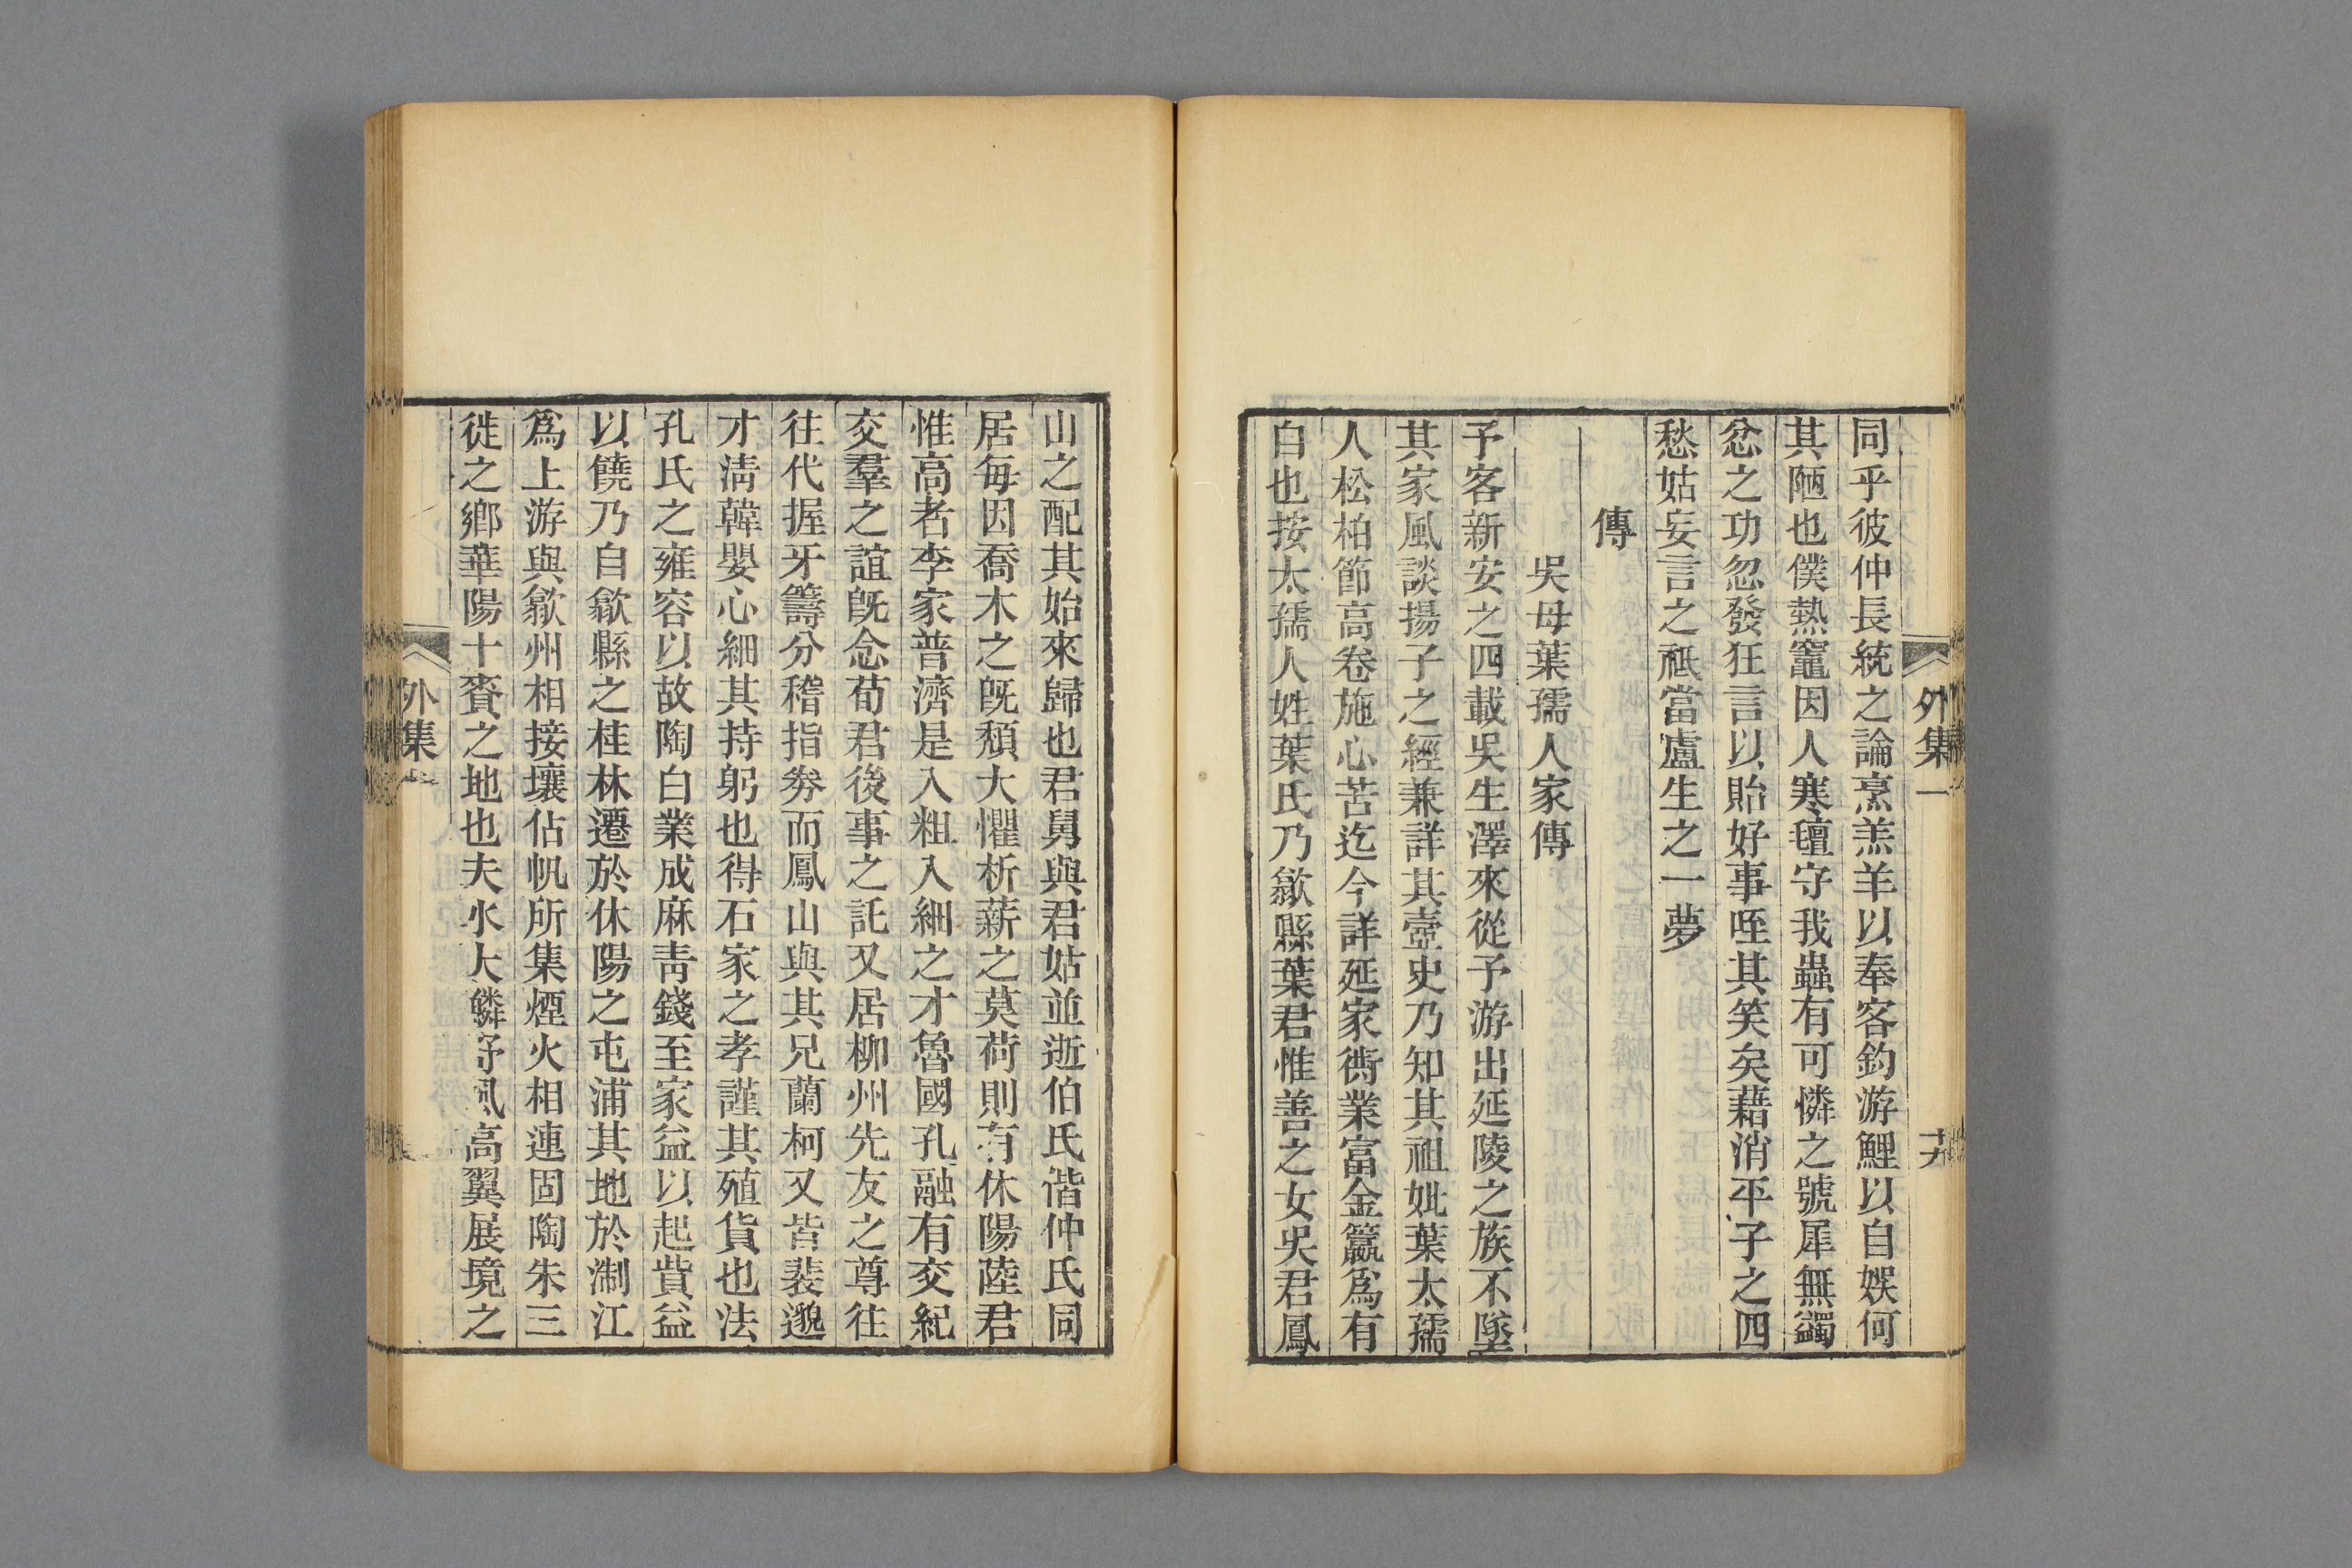 外集一
同乎彼仲長統之論烹羔羊以奉客釣游鯉以自娛何
其陋也僕熱竈因人寒氊守我蟲有可憐之號犀無蠲
忿之功忽發狂言以貽好事咥其笑矣藉消平子之四
愁姑妄言之祗當盧生之一夢
傳
吳母葉孺人家傳
予客新安之四載吳生澤來從予游出延陵之族不墜
其家風談揚子之經兼詳其壼史乃知其祖妣葉太孺
人松柏節高卷施心苦迄今詳延家衖業富金籯爲有
自也按太孺人姓葉氏乃歙縣葉君惟善之女吳君鳳
山之配其始來歸也君舅與君姑並逝伯氏偕仲氏同
居每因喬木之旣頹大懼析薪之莫荷則有休陽陸君
惟高者李家普濟是入粗入細之才魯國孔融有交紀
交羣之誼旣念荀君後事之託又居柳州先友之尊往
往代握牙籌分稽指劵而鳳山與其兄蘭柯又皆裴邈
才淸韓嬰心細其持躬也得石家之孝謹其殖貨也法
孔氏之雍容以故陶白業成麻靑錢至家益以起貲益
以饒乃自歙縣之桂林遷於休陽之屯浦其地於淛江
爲上游與歙州相接壤佔帆所集煙火相連固陶朱三
徙之鄕華陽十賚之地也夫水大鱗舒風高翼展境之
外集